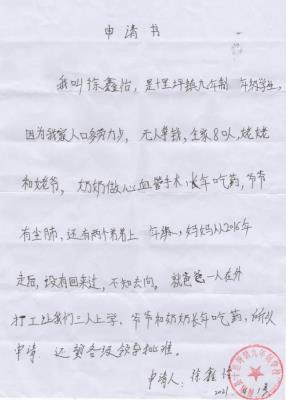 申请书
我叫徐鑫怡，是十里坪镇九年制 年级学生，
因为我家人口多劳力少，无人拿钱，全家8口人，姥姥
和姥爷，奶奶做心血管手术长年吃药，爷爷
有尘肺，还有两个弟弟上 年级，妈妈从2016年
走后，没有回来过，不知去向，就爸爸一人在外
打工让我们三人上学，爷爷和奶奶长年吃药，所以
申请 还望各级领导批准。
申请人：徐鑫怡
2021